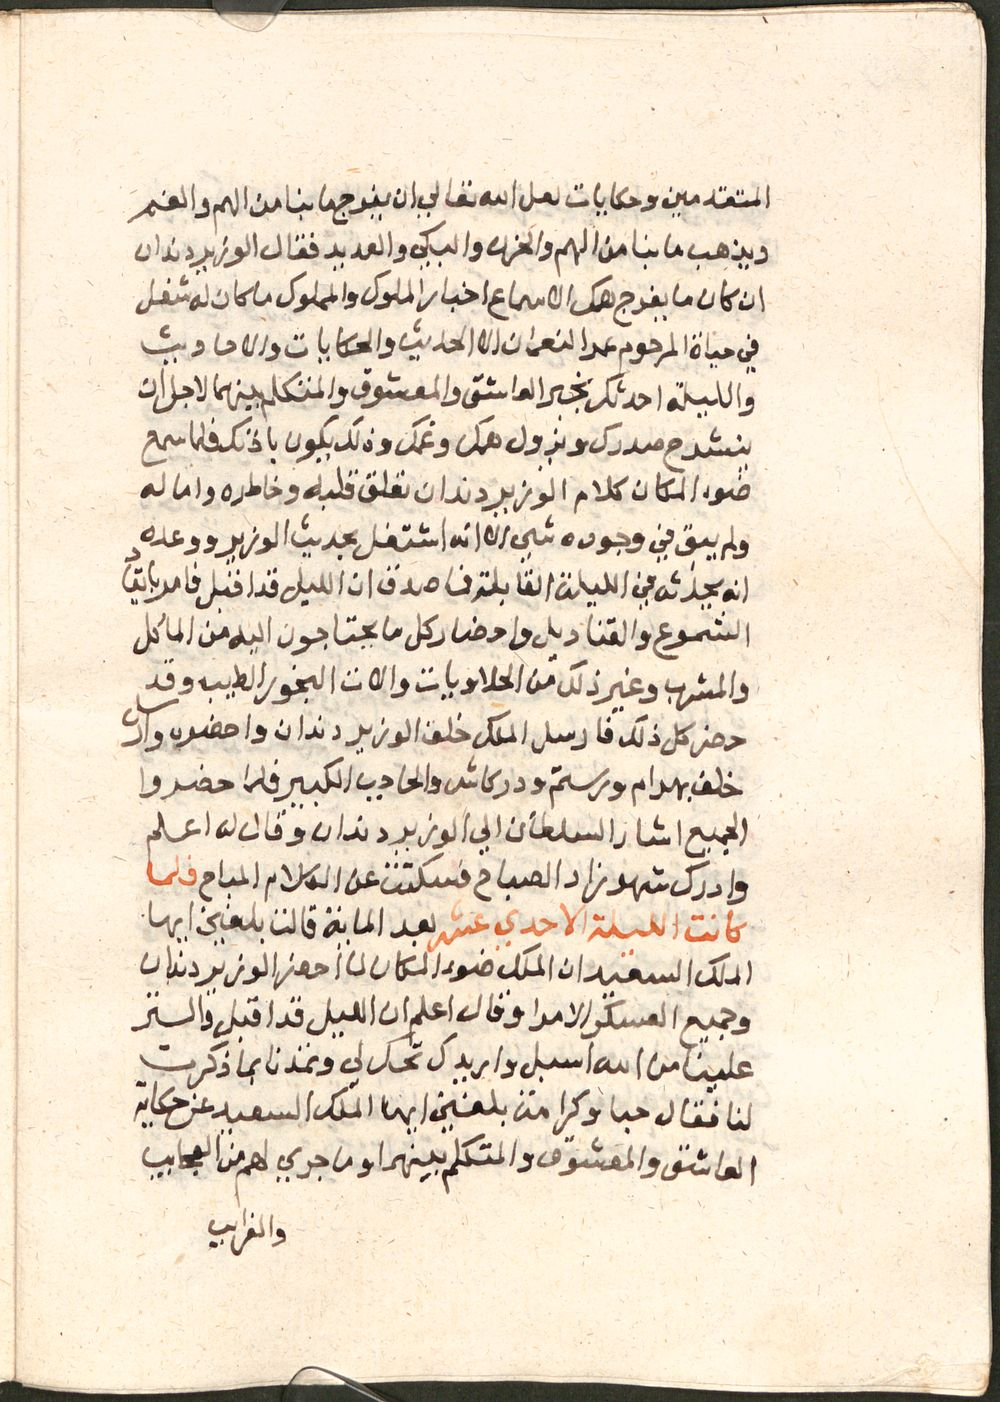 المتقدمين وحكايات لعل الله تعالي ان يفرج ما بنا من الهم والغم
ويذهب ما بنا من الهم والحزن والبكي والعديد فقال الوزير دندان
ان كان ما يفرج همك الا سماع اخبار الملوك والمملوك ما كان له شغل
في حياة المرحوم عمر النعمان الا الحديث والحكايات والاحاديث
والليلة احدثك بخبر العاشق والمعشوق والمتكلم بينهما لاجل ان
ينشرح صدرك ويزول همك وغمك وذلك يكون باذنك فلما سمع
ضوء المكان كلام الوزير دندان تعلق قلبه وخاطره واماله
ولم يبق في وجوده شي الا انه اشتغل بحديث الوزير ووعده
انه يحدثه في الليلة القابلة فما صدق ان الليل قد اقبل فامر باتقاد
الشموع والقناديل واحضار كل ما يحتاجون اليه من الماكل
والمشرب وغير ذلك من الحلاويات والات البخور الطيب وقد
حضر كل ذلك فارسل الملك خلف الوزير دندان واحضره وارسل
خلف بهرام ورستم ودركاش والحاجب الكبير فلما حضروا
الجميع اشار السلطان الي الوزير دندان وقال له اعلم
وادرك شهرزاد الصباح فسكتت عن الكلام المباح فلما
كانت الليلة الاحدي عشر بعد الماية قالت بلغني ايها
الملك السعيد ان الملك ضوء المكان لما احضر الوزير دندان
وجميع العسكر الامرا وقال اعلم ان الليل قد اقبل والستر
علينا من الله اسبل واريدك تحكي لي وتمدنا بما ذكرت
لنا فقال حبا وكرامة بلغني ايها الملك السعيد عن حكاية
العاشق والمعشوق والمتكلم بينهما وما جري لهم من العجايب
والغرايب